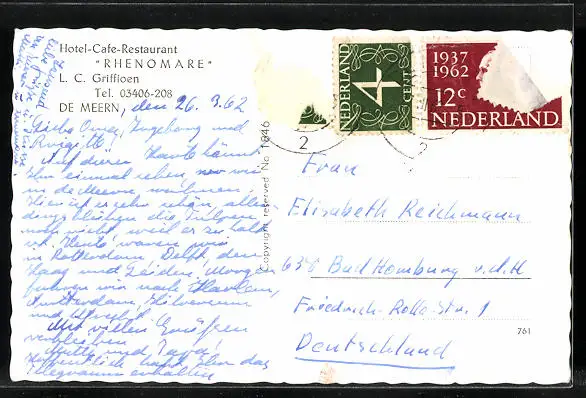 Hotel-Cafe-Restaurant
"RHENOMARE"
L. C. Griffioen
Tel. 03406-208
DE MEERN, den 26.3.62
Liebe Oma, Ingeborg und
Auf dieser Karte könnt
Ihr einmal sehen, wo wir
in de Meern, wohnen.
Hier ist es sehr schön, aller-
dings blühen die Tulpen
noch nicht, weil es zu kalt
ist. Heute waren wir
in Rotterdam, Delft, den
Haag und Leiden, Morgen
fahren wir nach Haarlem,
Amsterdam, Hilversum
und
Mit vielen Grüßen
verbleiben
Mutti und Papa!
Hoffentlich habt Ihr das
Telegramm erhalten
Copyright reserved No. 1646
NEDERLAND
4
CENT
2
1937
1962
12c
NEDERLAND
Frau
Elisabeth Reichmann
638 Bad Homburg v.d.H
Friedrich-Rolle-Str. 1
Deutschland
761